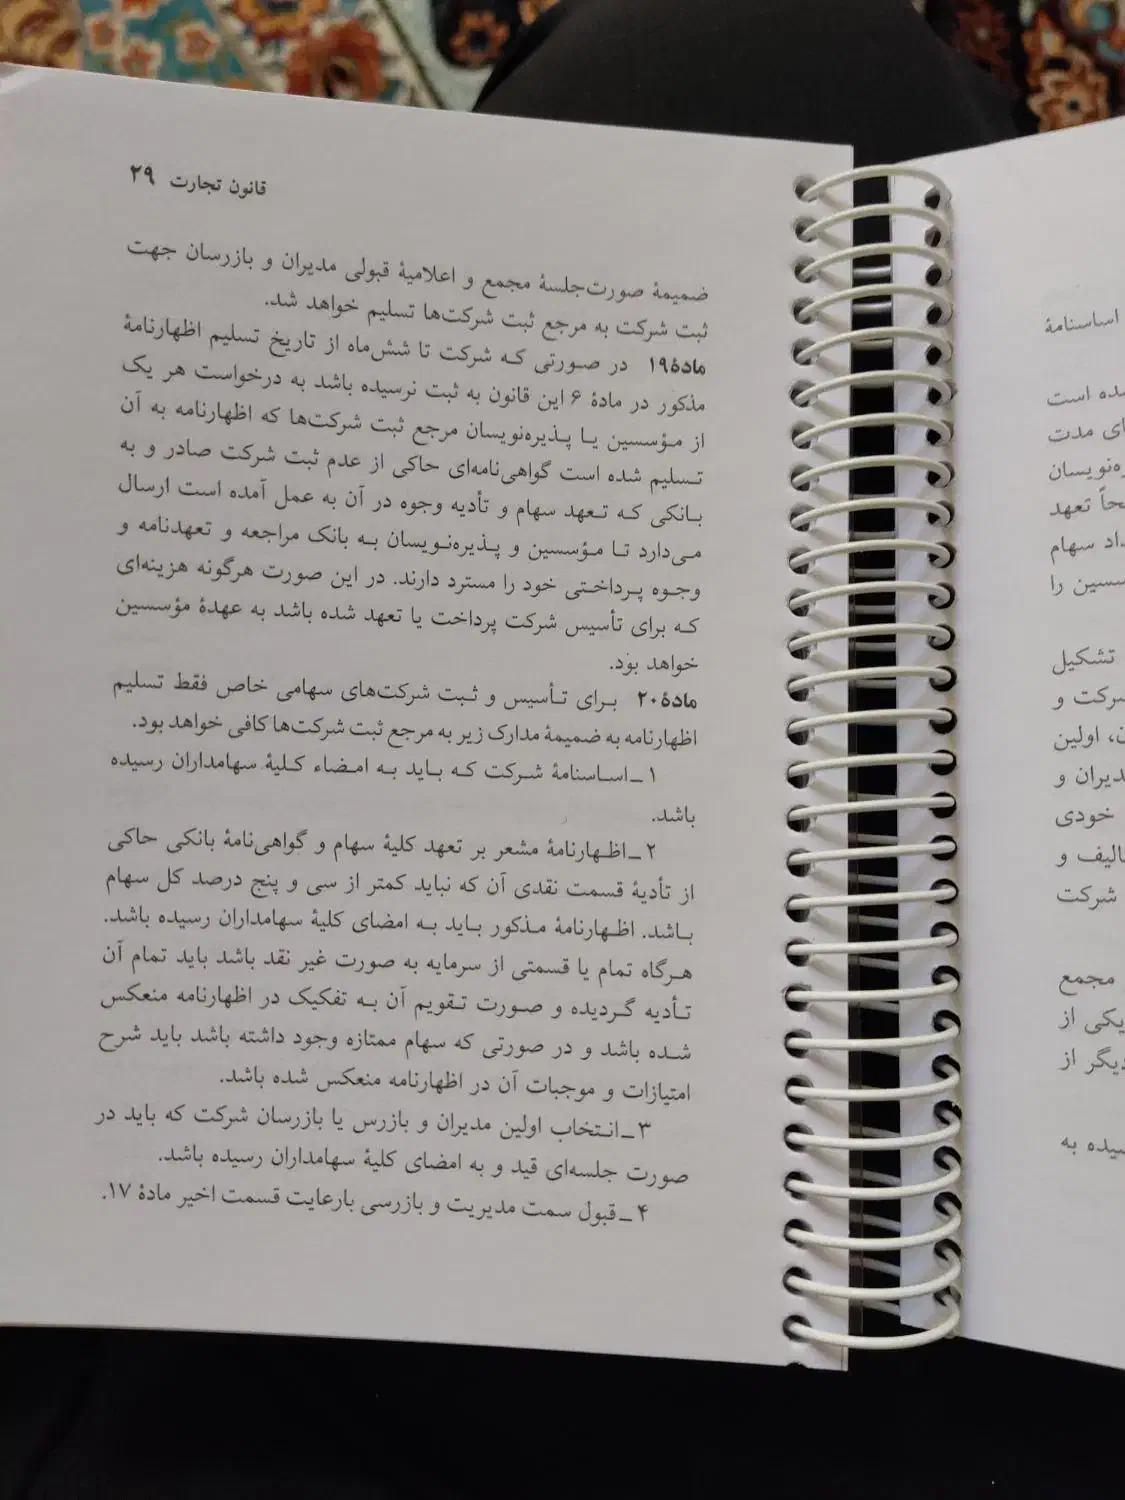 قانون تجارت ۲۹
ضمیمهٔ صورت‌جلسهٔ مجمع و اعلامیهٔ قبولی مدیران و بازرسان جهت
ثبت شرکت به مرجع ثبت شرکت‌ها تسلیم خواهد شد.
مادهٔ۱۹ در صورتی که شرکت تا شش‌ماه از تاریخ تسلیم اظهارنامهٔ
مذکور در مادهٔ ۶ این قانون به ثبت نرسیده باشد به درخواست هر یک
از مؤسسین یا پذیره‌نویسان مرجع ثبت شرکت‌ها که اظهارنامه به آن
تسلیم شده است گواهی‌نامه‌ای حاکی از عدم ثبت شرکت صادر و به
بانکی که تعهد سهام و تأدیه وجوه در آن به عمل آمده است ارسال
می‌دارد تا مؤسسین و پذیره‌نویسان به بانک مراجعه و تعهدنامه و
وجوه پرداختی خود را مسترد دارند. در این صورت هرگونه هزینه‌ای
که برای تأسیس شرکت پرداخت یا تعهد شده باشد به عهدهٔ مؤسسین
خواهد بود.
مادهٔ۲۰ برای تأسیس و ثبت شرکت‌های سهامی خاص فقط تسلیم
اظهارنامه به ضمیمهٔ مدارک زیر به مرجع ثبت شرکت‌ها کافی خواهد بود.
۱ـ اساسنامهٔ شرکت که باید به امضاء کلیهٔ سهامداران رسیده
باشد.
۲ـ اظهارنامهٔ مشعر بر تعهد کلیهٔ سهام و گواهی‌نامهٔ بانکی حاکی
از تأدیهٔ قسمت نقدی آن که نباید کمتر از سی و پنج درصد کل سهام
باشد. اظهارنامهٔ مذکور باید به امضای کلیهٔ سهامداران رسیده باشد.
هرگاه تمام یا قسمتی از سرمایه به صورت غیر نقد باشد باید تمام آن
تأدیه گردیده و صورت تقویم آن به تفکیک در اظهارنامه منعکس
شده باشد و در صورتی که سهام ممتازه وجود داشته باشد باید شرح
امتیازات و موجبات آن در اظهارنامه منعکس شده باشد.
۳ـ انتخاب اولین مدیران و بازرس یا بازرسان شرکت که باید در
صورت جلسه‌ای قید و به امضای کلیهٔ سهامداران رسیده باشد.
۴ـ قبول سمت مدیریت و بازرسی بارعایت قسمت اخیر مادهٔ ۱۷.
اساسنامهٔ
شده است
مدت
تعهد
سهام
را
تشکیل
شرکت و
اولین
مدیران و
خودی
و
شرکت
مجمع
یکی از
دیگر از
به